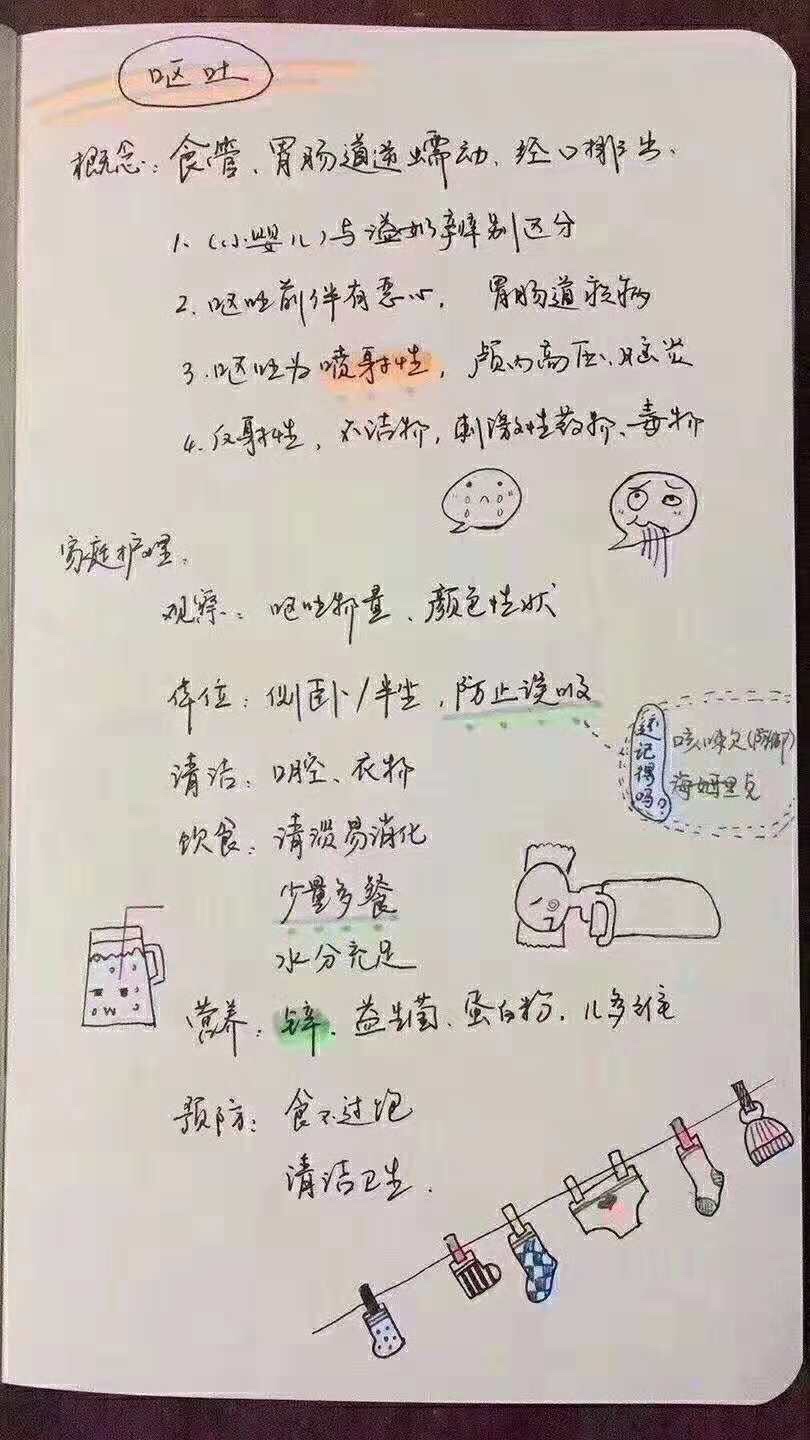 呕吐
概念：食管、胃肠道逆蠕动、经口排出、
1、(小婴儿)与溢奶辨别区分
2、呕吐前伴有恶心， 胃肠道疾病
3、呕吐为喷射性，颅内高压、脑炎
4、反射性，不洁物，刺激性药物、毒物
家庭护理：
观察：呕吐物量、颜色性状
体位：侧卧/半坐，防止误吸
还记得吗?
咳嗽
海姆里克
清洁：口腔、衣物
饮食：清淡易消化
少量多餐
水分充足
营养：锌、益生菌、蛋白粉、儿多维
预防：食不过饱
清洁卫生.